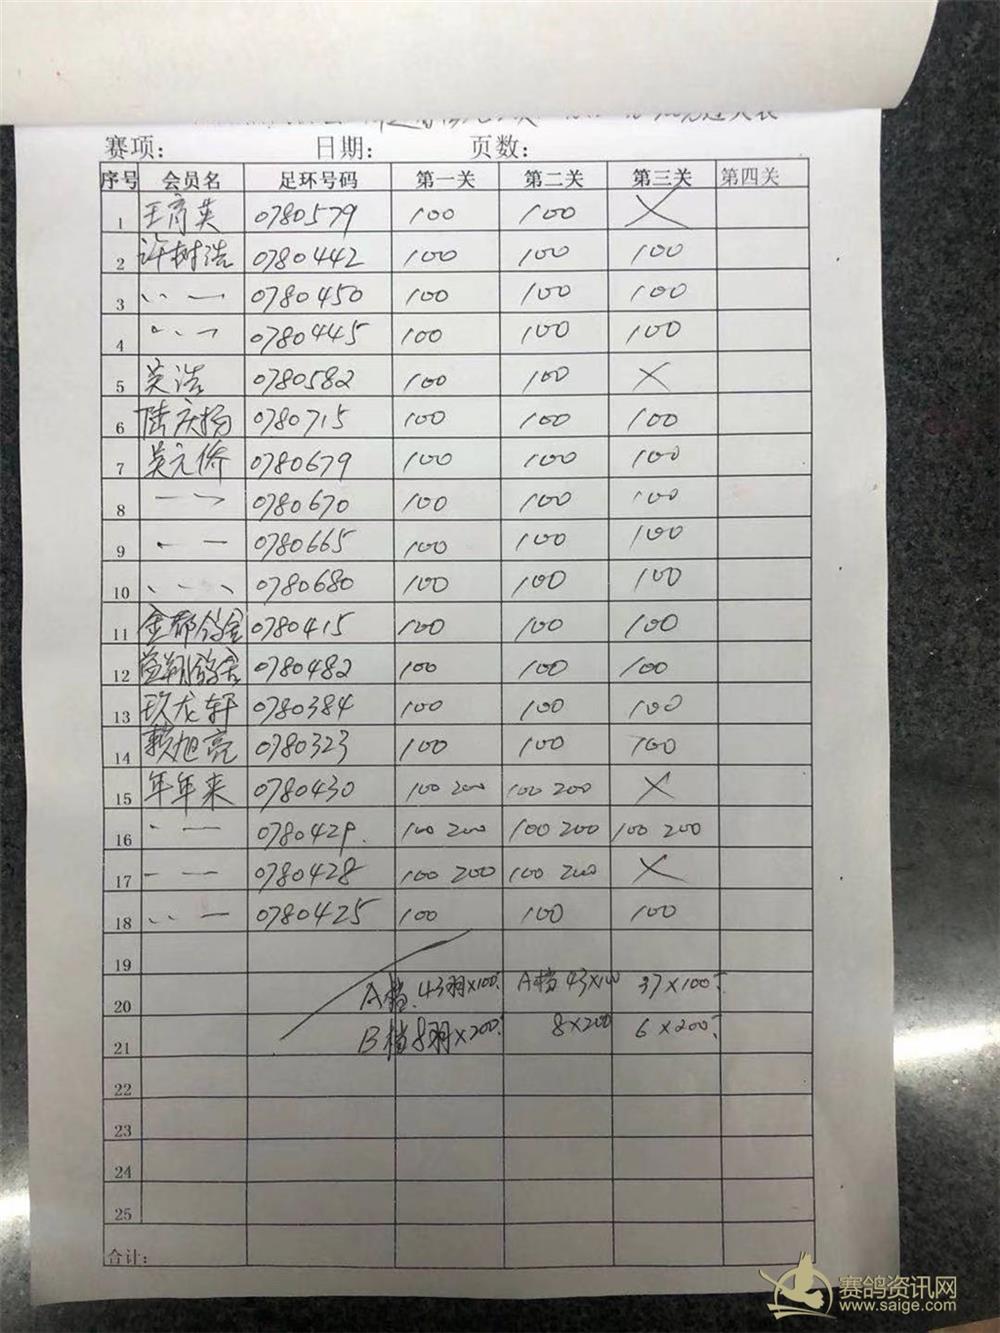 赛项： 日期： 页数：
序号 会员名 足环号码 第一关 第二关 第三关 第四关
1 王育英 0780579 100 100 ×
2 许树浩 0780442 100 100 100
3 〃 — 0780450 100 100 100
4 〃 — 0780445 100 100 100
5 吴浩 0780582 100 100 ×
6 陆庆扬 0780715 100 100 100
7 吴元侨 0780679 100 100 100
8 — 〃 0780670 100 100 100
9 〃 — 0780665 100 100 100
10 〃 〃 0780680 100 100 100
11 金都鸽舍 0780415 100 100 100
12 翔鸽舍 0780482 100 100 100
13 玖龙轩 0780384 100 100 100
14 赖旭亮 0780323 100 100 100
15 年年来 0780430 100 200 100 200 ×
16 〃 — 0780429. 100 200 100 200 100 200
17 — — 0780428 100 200 100 200 ×
18 〃 — 0780425 100 100 100
19
20 A档. 43羽×100 A档 43×100 37×100
21 B档 8羽×200 8×200 6×200
22
23
24
25
合计：
赛鸽资讯网
www.saige.com